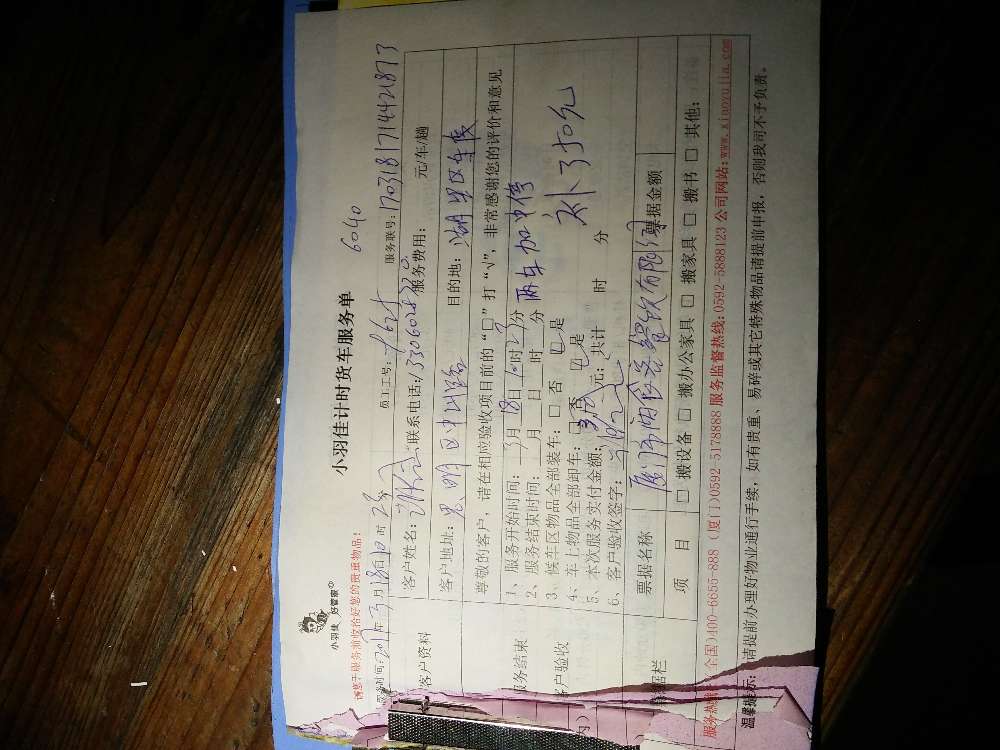 小羽佳 好管家
小羽佳计时货车服务单
6040
请您于服务前收拾好您的贵重物品：
2017年3月18日10时2分 员工工号： 服务联号：1703181714421873
客户资料 客户姓名： 联系电话：13306025320 服务费用： 元/车/趟
客户地址：思明区中山路 目的地：湖里区车候
尊敬的客户，请在相应验收项目前的“□”打“√”，非常感谢您的评价和意见
1、服务开始时间：3月18日10时2分 两车加中停
服务结束 2、服务结束时间： 月 日 时 分
3、候车区物品全部装车：□否 □是
补了350元
客户验收 4、车上物品全部卸车：□否 □是
5、本次服务实付金额： 元；共计 时 分
6、客户验收签字：
票据名称 票据金额
项 目 □搬设备 □搬办公家具 □搬家具 □搬书 □其他：
(全国)400-6655-888 (厦门)0592-5178888 服务监督热线:0592-5888123 公司网站:www.xiaoyujia.com
温馨提示：请提前办理好物业通行手续，如有贵重、易碎或其它特殊物品请提前申报，否则我司不予负责。